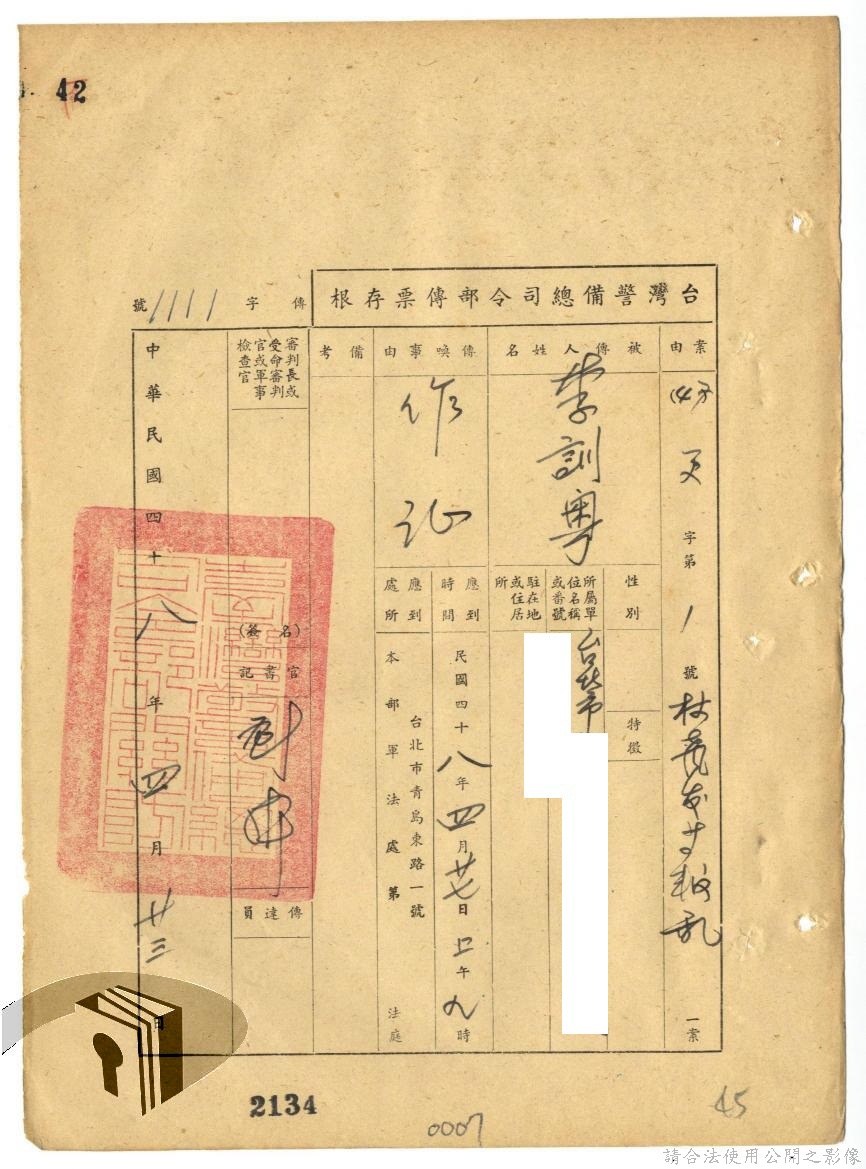 42
台灣警備總司令部傳票存根
傳字1111號
案由
字第1號
叛乱
一案
被傳人姓名
李訓粵
性別
特徵
所屬單位名稱或番號
台北市
駐在地或住居所
傳喚事由
作证
應到時間
民國四十八年四月廿七日上午九時
應到處所
台北市青島東路一號
本部軍法處第
法庭
備考
審判長或受命審判官或軍事檢查官
(簽名)
書記官
傳達員
中華民國四十八年四月廿三日
2134
0007
45
請合法使用公開之影像